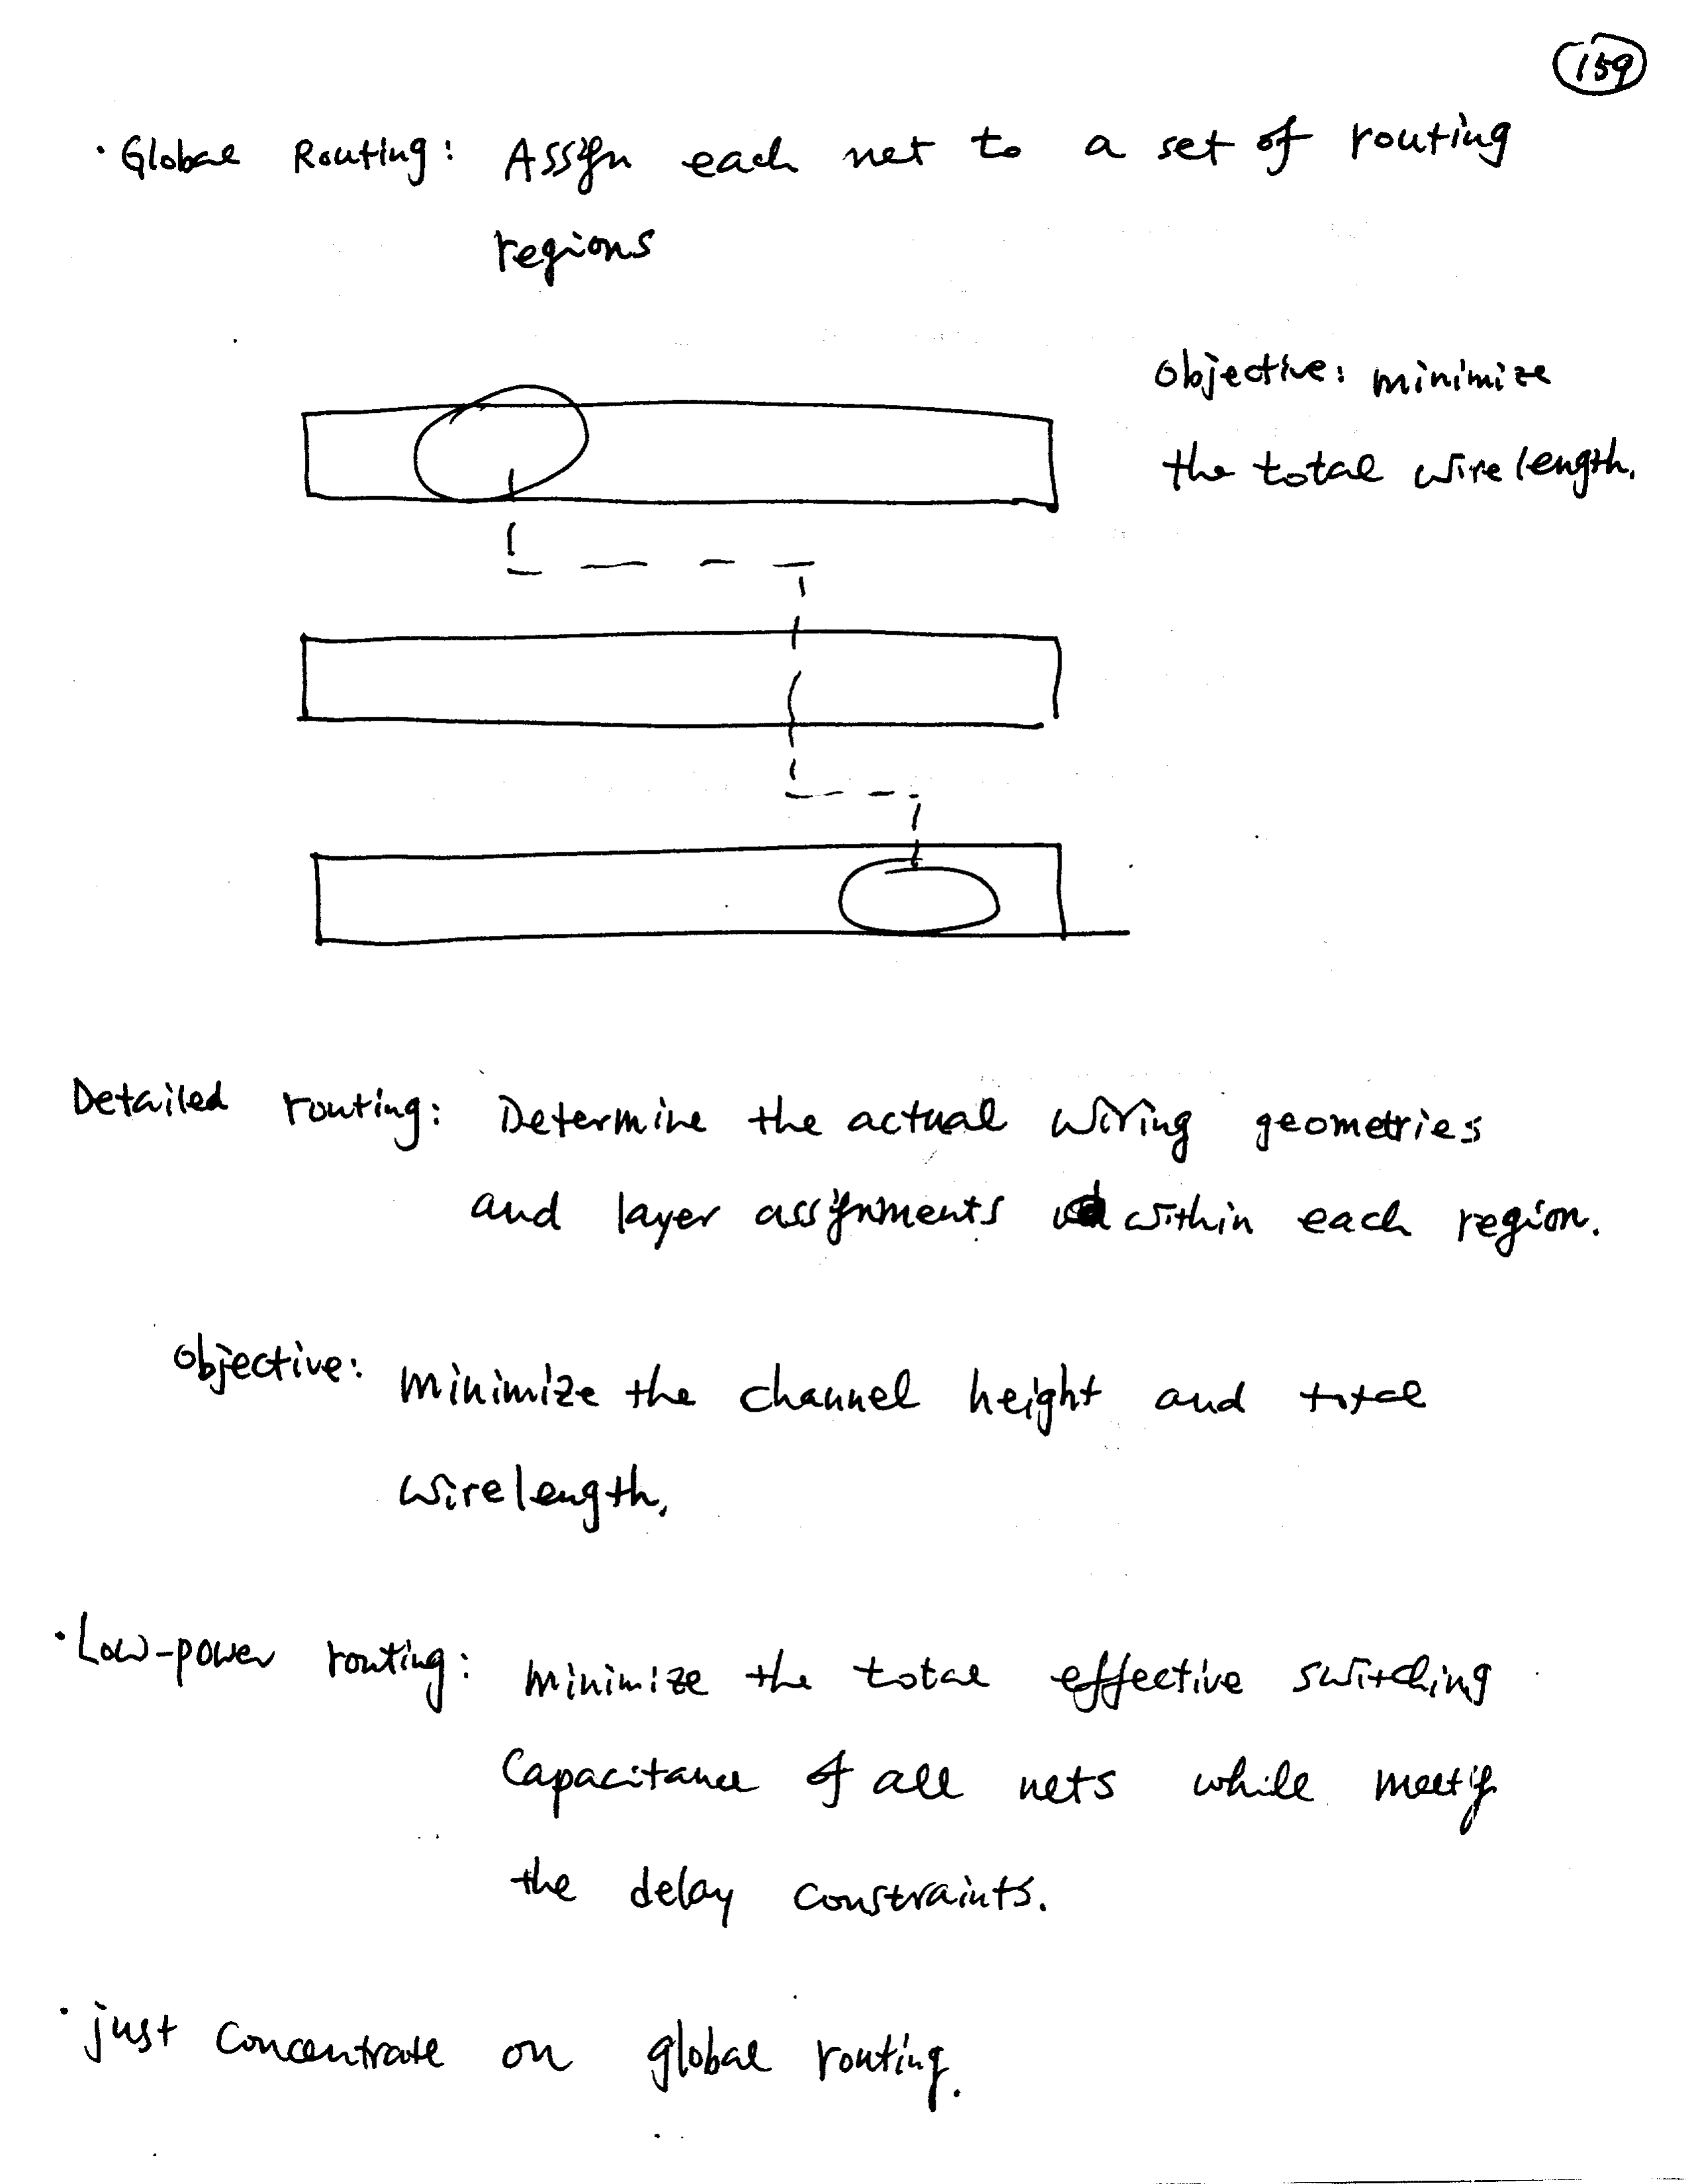 159
· Global Routing: Assign each net to a set of routing
regions
Objective: minimize
the total wirelength.
Detailed routing: Determine the actual wiring geometries
and layer assignments within each region.
Objective: Minimize the channel height and total
wirelength.
· Low-power routing: minimize the total effective switching
Capacitance of all nets while meeting
the delay constraints.
· just concentrate on global routing.